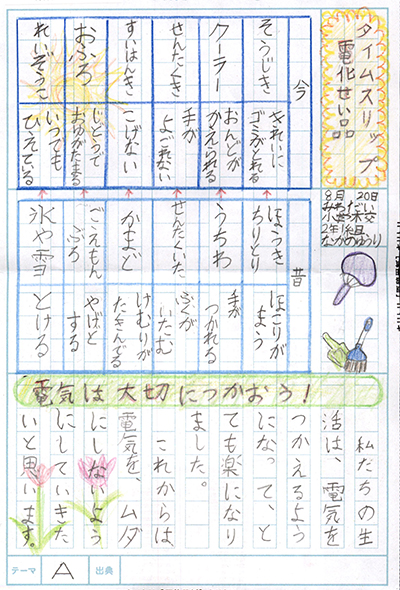 タイムスリップ
電化せい品
8月20日
2年1組
今
そうじき
きれいに
ゴミがとれる
クーラー
おんどが
かえられる
せんたくき
手が
よごれない
すいはんき
こげない
おふろ
じどうで
おゆがたまる
れいぞうこ
いつでも
ひえている
昔
ほうき
ちりとり
ほこりが
まう
うちわ
手が
つかれる
せんたくいた
ふくが
いたむ
かまど
けむりが
たきんでる
ごえもん
ぶろ
やけど
する
氷や雪
とける
電気は大切につかおう!
私たちの生
活は、電気を
つかえるよう
になって、と
ても楽になり
ました。
これからは
電気を、ムダ
にしないよう
にしていきた
いと思います。
テーマ
A
出典